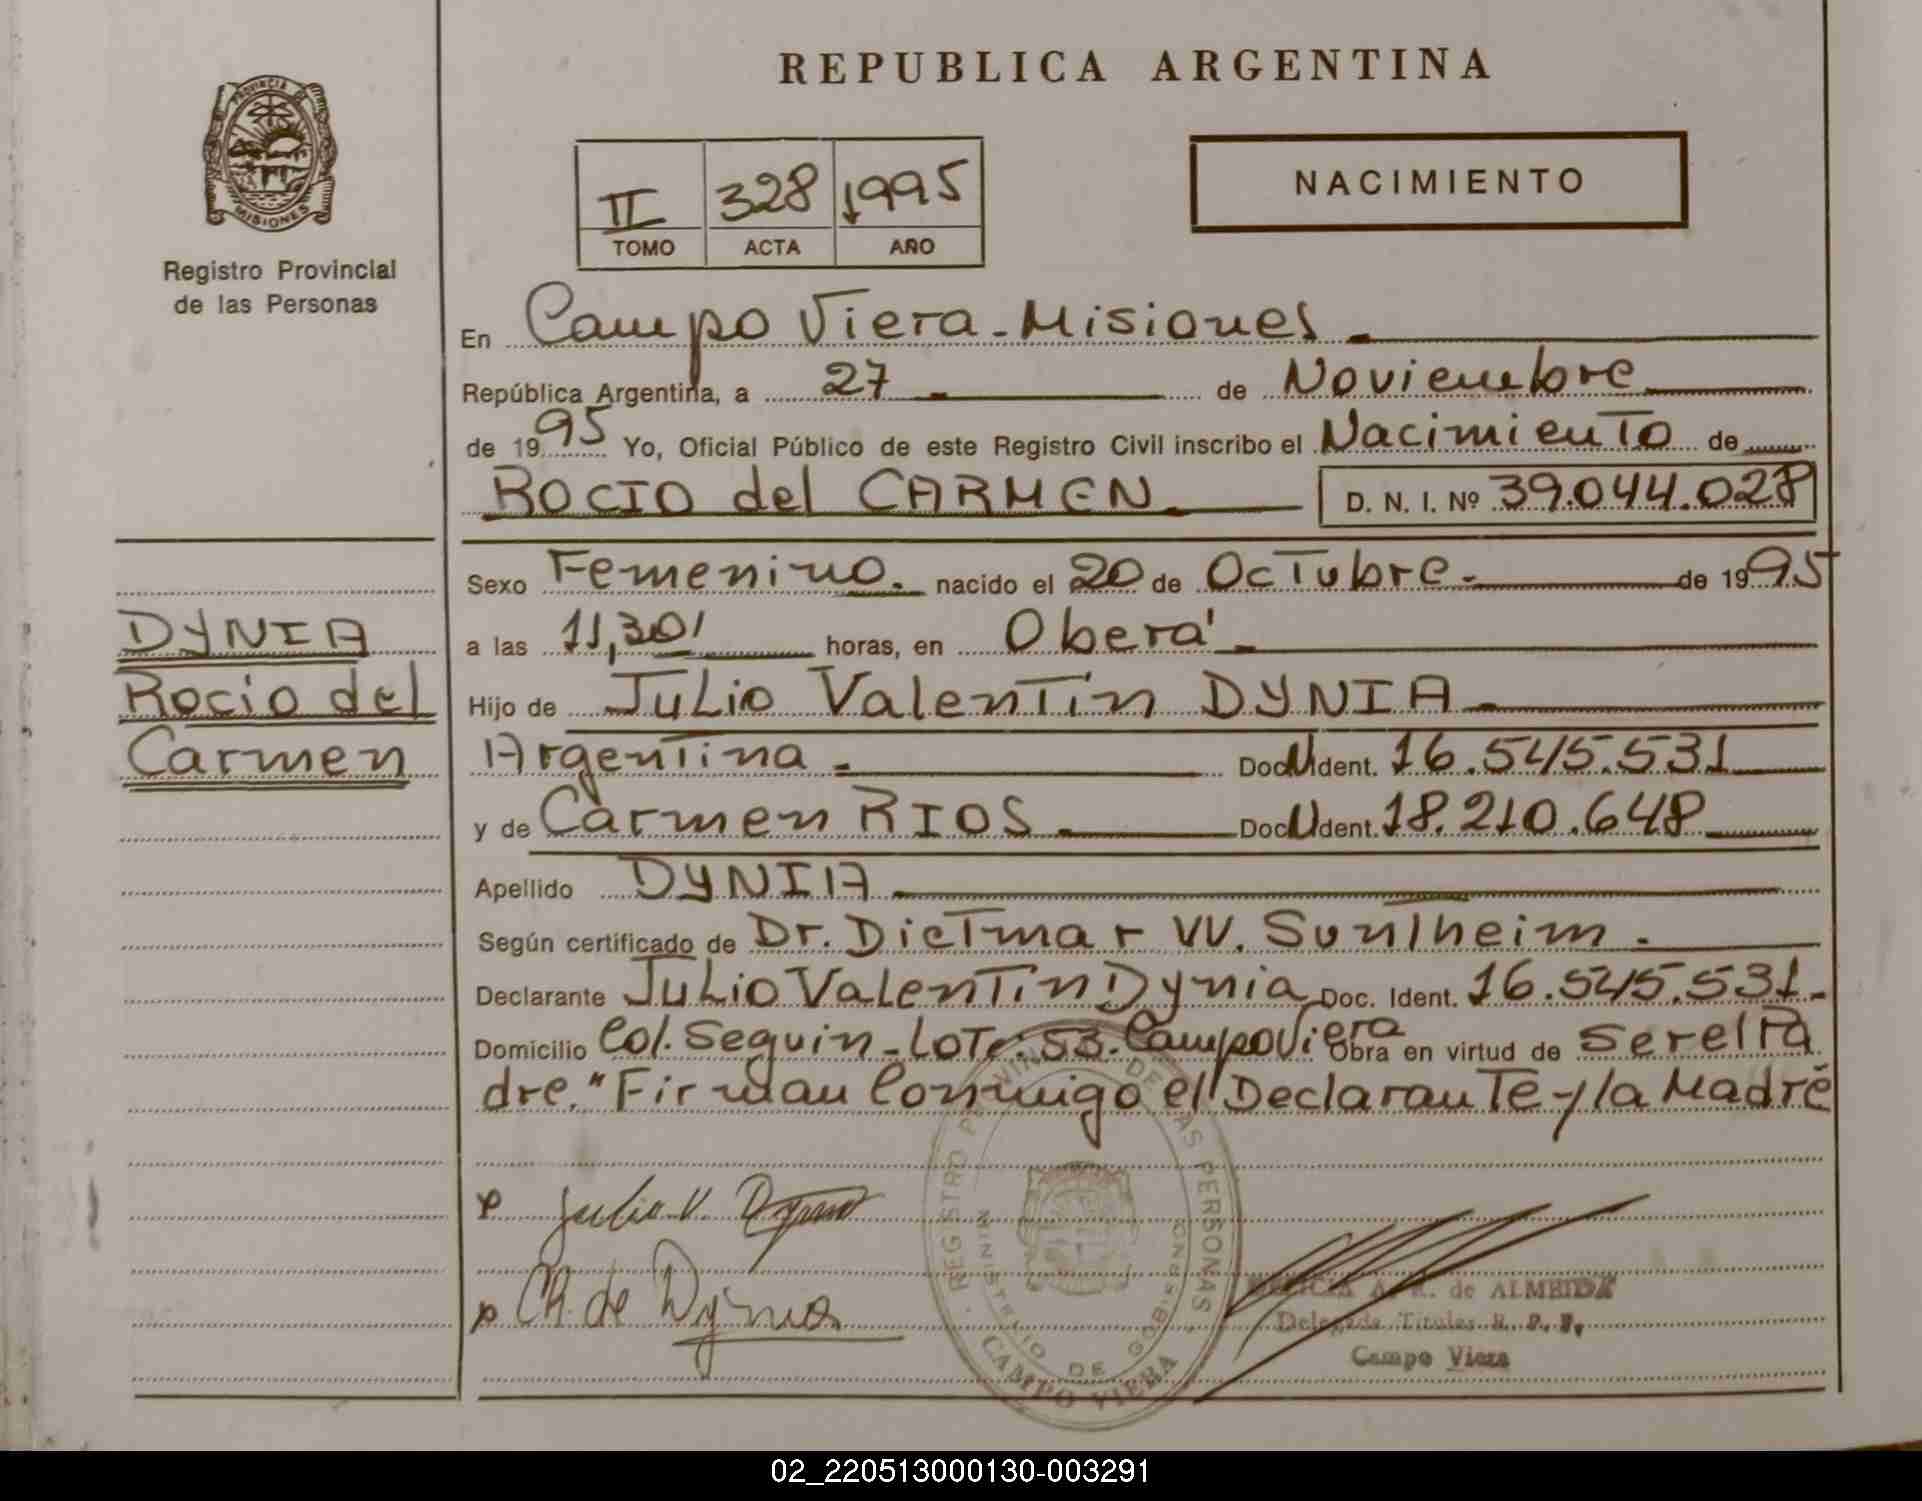 REPUBLICA ARGENTINA
PROVINCIA DE
MISIONES
Registro Provincial
de las Personas
II 328 1995
TOMO ACTA AÑO
NACIMIENTO
En Campo Viera - Misiones
República Argentina, a 27 de Noviembre
de 1995 Yo, Oficial Público de este Registro Civil inscribo el Nacimiento de
ROCIO del CARMEN D. N. I. Nº 39.044.028
Sexo Femenino. nacido el 20 de Octubre. de 1995
a las 11,30' horas, en Oberá
Hijo de Julio Valentín DYNIA
Argentina Doc. Ident. 16.545.531
y de Carmen RIOS Doc. Ident. 18.210.648
Apellido DYNIA
Según certificado de Dr. Dietmar W. Suntheim.
Declarante Julio Valentín Dynia Doc. Ident. 16.545.531.
Domicilio Col. Seguin - Lote. 53. Campo Viera Obra en virtud de Ser el Pa
dre. "Firman Conmigo el Declarante y la Madre
DYNIA
Rocio del
Carmen
Julio V. Dynia
CR. de Dynia
REGISTRO PROVINCIAL DE LAS PERSONAS
MINISTERIO DE GOBIERNO
CAMPO VIERA
A. R. de ALMEIDA
Delegada Titular R. P. P.
Campo Viera
02_220513000130-003291